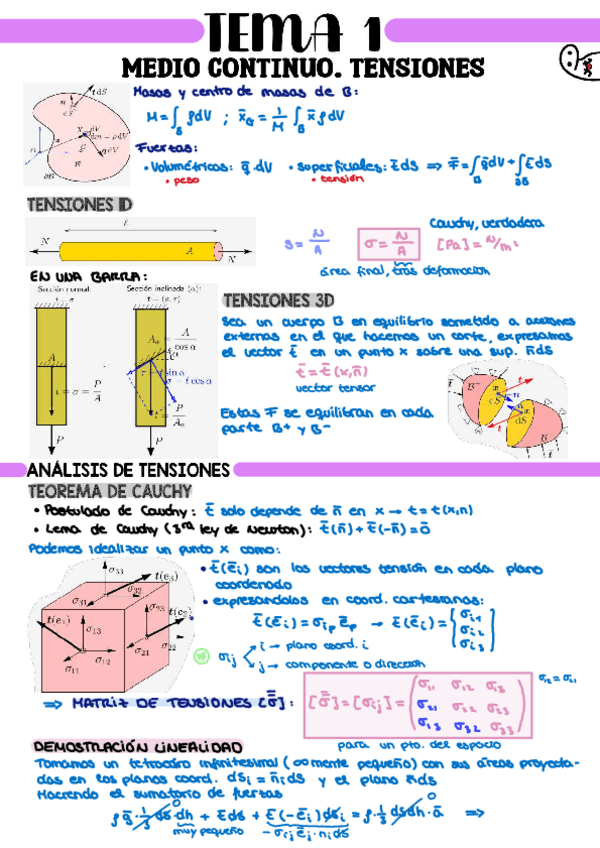 TEMA 1
MEDIO CONTINUO. TENSIONES
Masas y centro de masas de B:
M = ∫_B ρdV ; x̄_G = 1/M ∫_B x̄ρdV
Fuerzas:
• Volumétricas: q̄ · dV • superficiales: t̄ds ⇒ F̄ = ∫_B q̄dV + ∫_∂B t̄ds
• peso • tensión
TENSIONES 1D
Cauchy, verdadera
N A N
S = N/A σ = N/A [Pa] = N/m²
área final, tras deformación
EN UNA BARRA:
Sección normal: Sección inclinada (α):
TENSIONES 3D
Sea un cuerpo B en equilibrio sometido a acciones
externas en el que hacemos un corte, expresamos
el vector t̄ en un punto x sobre una sup. n̄ds
t̄ = t̄(x,n̄)
vector tensor
Estas F se equilibran en cada
parte B⁺ y B⁻
ANÁLISIS DE TENSIONES
TEOREMA DE CAUCHY
• Postulado de Cauchy: t̄ solo depende de n̄ en x → t = t(x,n)
• Lema de Cauchy (3ra ley de Newton): t̄(n̄) + t̄(-n̄) = 0̄
Podemos idealizar un punto x como:
• t̄(ē_i) son los vectores tensión en cada plano
coordenado
• expresándolos en coord. cartesianas:
t̄(ē_i) = σ_ip ē_p → t̄(ē_i) = {σ_i1 σ_i2 σ_i3}
σ_ij i → plano coord. i
j → componente o dirección
σ33 t(e3) σ32 σ31 t(e1) σ23 t(e2) σ13 σ22 σ12 σ21 σ11
⇒ MATRIZ DE TENSIONES [σ̿]: [σ̿] = [σ_ij] = (σ11 σ12 σ13 σ21 σ22 σ23 σ31 σ32 σ33)
para un pto. del espacio
DEMOSTRACIÓN LINEALIDAD
Tomamos un tetraedro infinitesimal (∞mente pequeño) con sus áreas proyecta-
das en los planos coord. ds_i = n̄_i ds y el plano n̄ds
Haciendo el sumatorio de fuerzas
ρq̄ · 1/3 ds·dh + t̄ds + t̄(-ē_i)ds_i = ρ · 1/3 dsdh·ā ⇒
muy pequeño -σ_ij ē_j · n_i ds